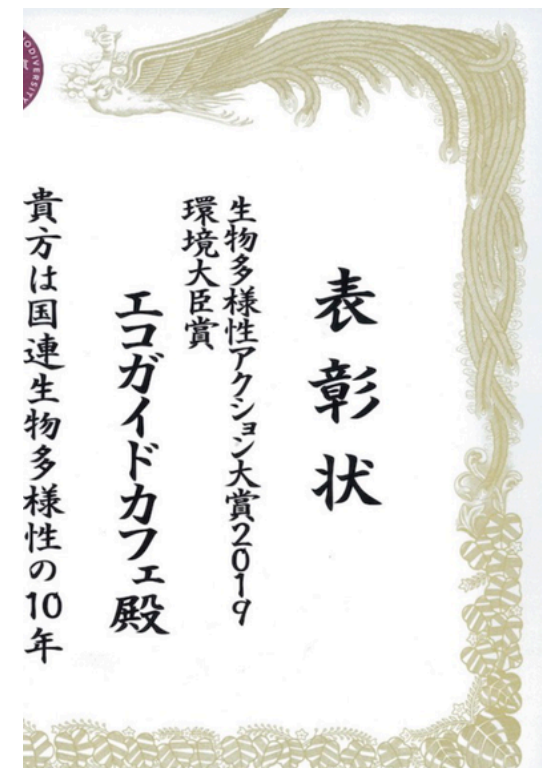 表彰状
生物多様性アクション大賞2019
環境大臣賞
エコガイドカフェ殿
貴方は国連生物多様性の10年
ODIVERSITY